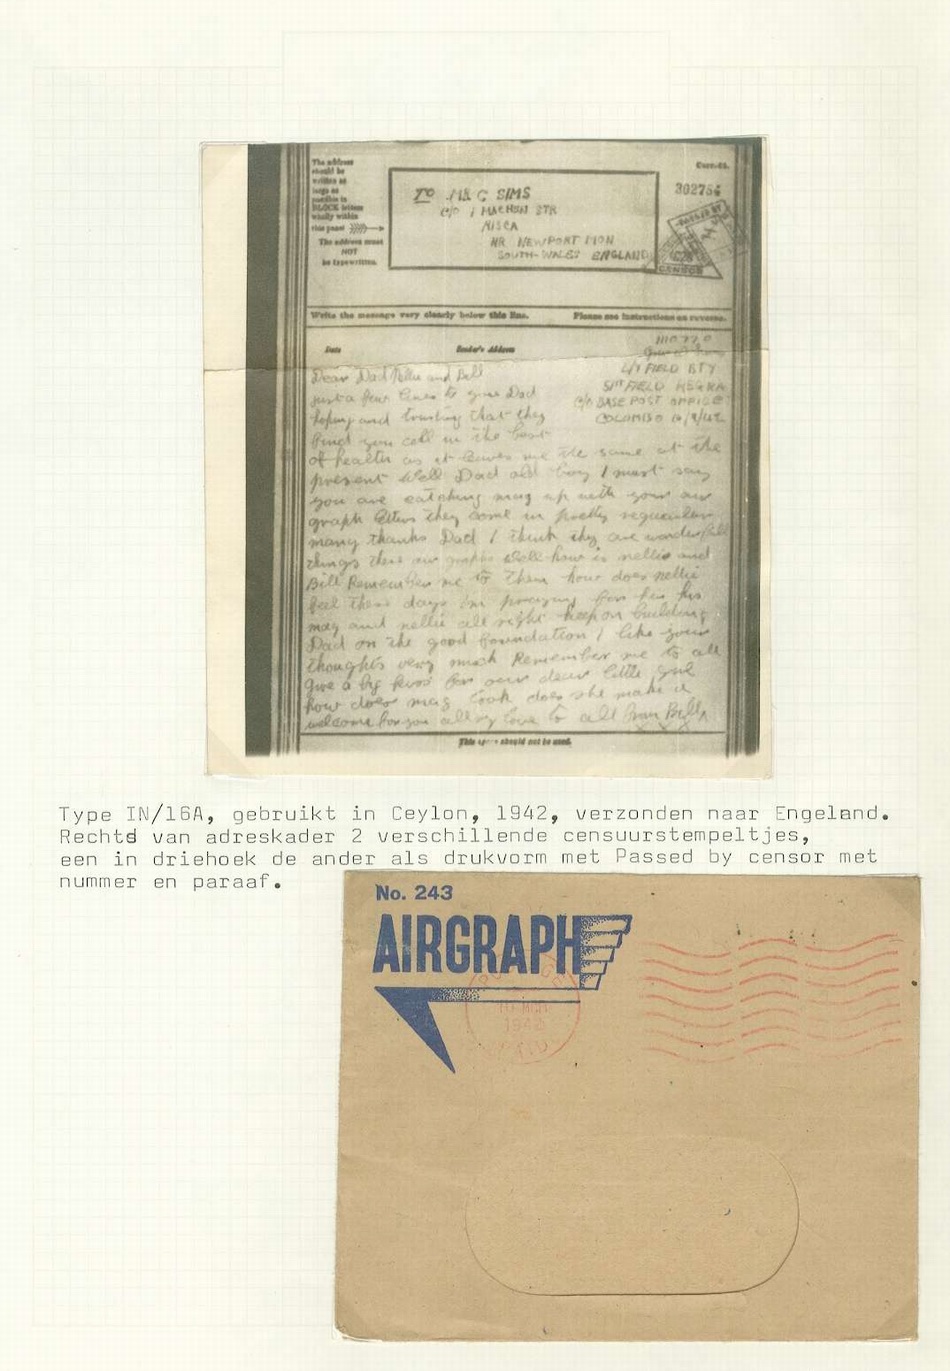 The address
should be
written as
large as
possible in
BLOCK letters
wholly within
this panel
The address must
NOT
be typewritten.
TO MR C SIMS
C/O 1 MACHEN STR
RISCA
NR NEWPORT MON
SOUTH-WALES ENGLAND
302754
PASSED BY
CENSOR
Write the message very clearly below this line. Please see instructions on reverse.
Date Sender's Address
FIELD BTY
FIELD REG RA
C/O BASE POST OFFICE
COLOMBO
Dear Dad Nellie and Bill
just a few lines to you Dad
hoping and trusting that they
find you all in the best
of health as it leaves me the same at the
present Well Dad old boy I must say
you are catching mag up with your air
graph letters they come in pretty regular
many thanks Dad I think they are wonderfull
things these air graphs Well how is nellie and
Bill Remember me to them how does nellie
feel these days im praying for
mag and nellie all right keep on building
Dad on the good foundation I like your
thoughts very much Remember me to all
give a big kiss for our dear little girl
how does mag look does she make a
welcome for you all my love to all from Bill
X X X
This space should not be used.
Type IN/16A, gebruikt in Ceylon, 1942, verzonden naar Engeland.
Rechts van adreskader 2 verschillende censuurstempeltjes,
een in driehoek de ander als drukvorm met Passed by censor met
nummer en paraaf.
No. 243
AIRGRAPH